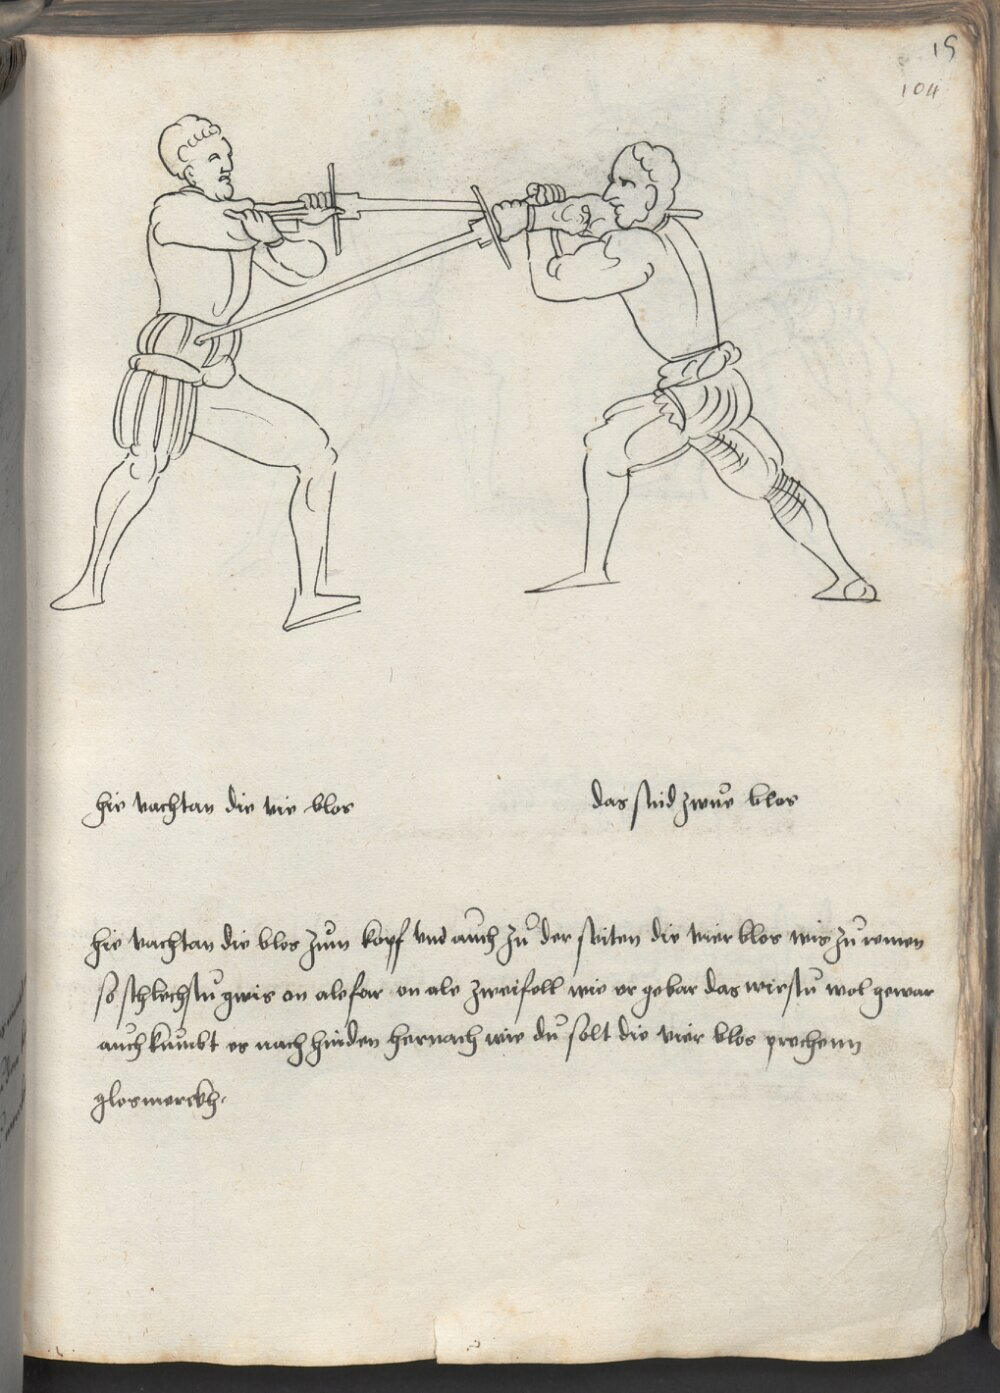 15
104
hie vachtan die vie blos
das sind zwue blos
hie vachtan die blos zum kopf vnd auch zu der seiten die vier blos wis zu remen
so schlechstu gwis on alefar on ale zweifell wie er gebar das wirstu wol gewar
auch kumbt es nach hinden hernach wie du solt die vier blos prechenn
glos merckh.